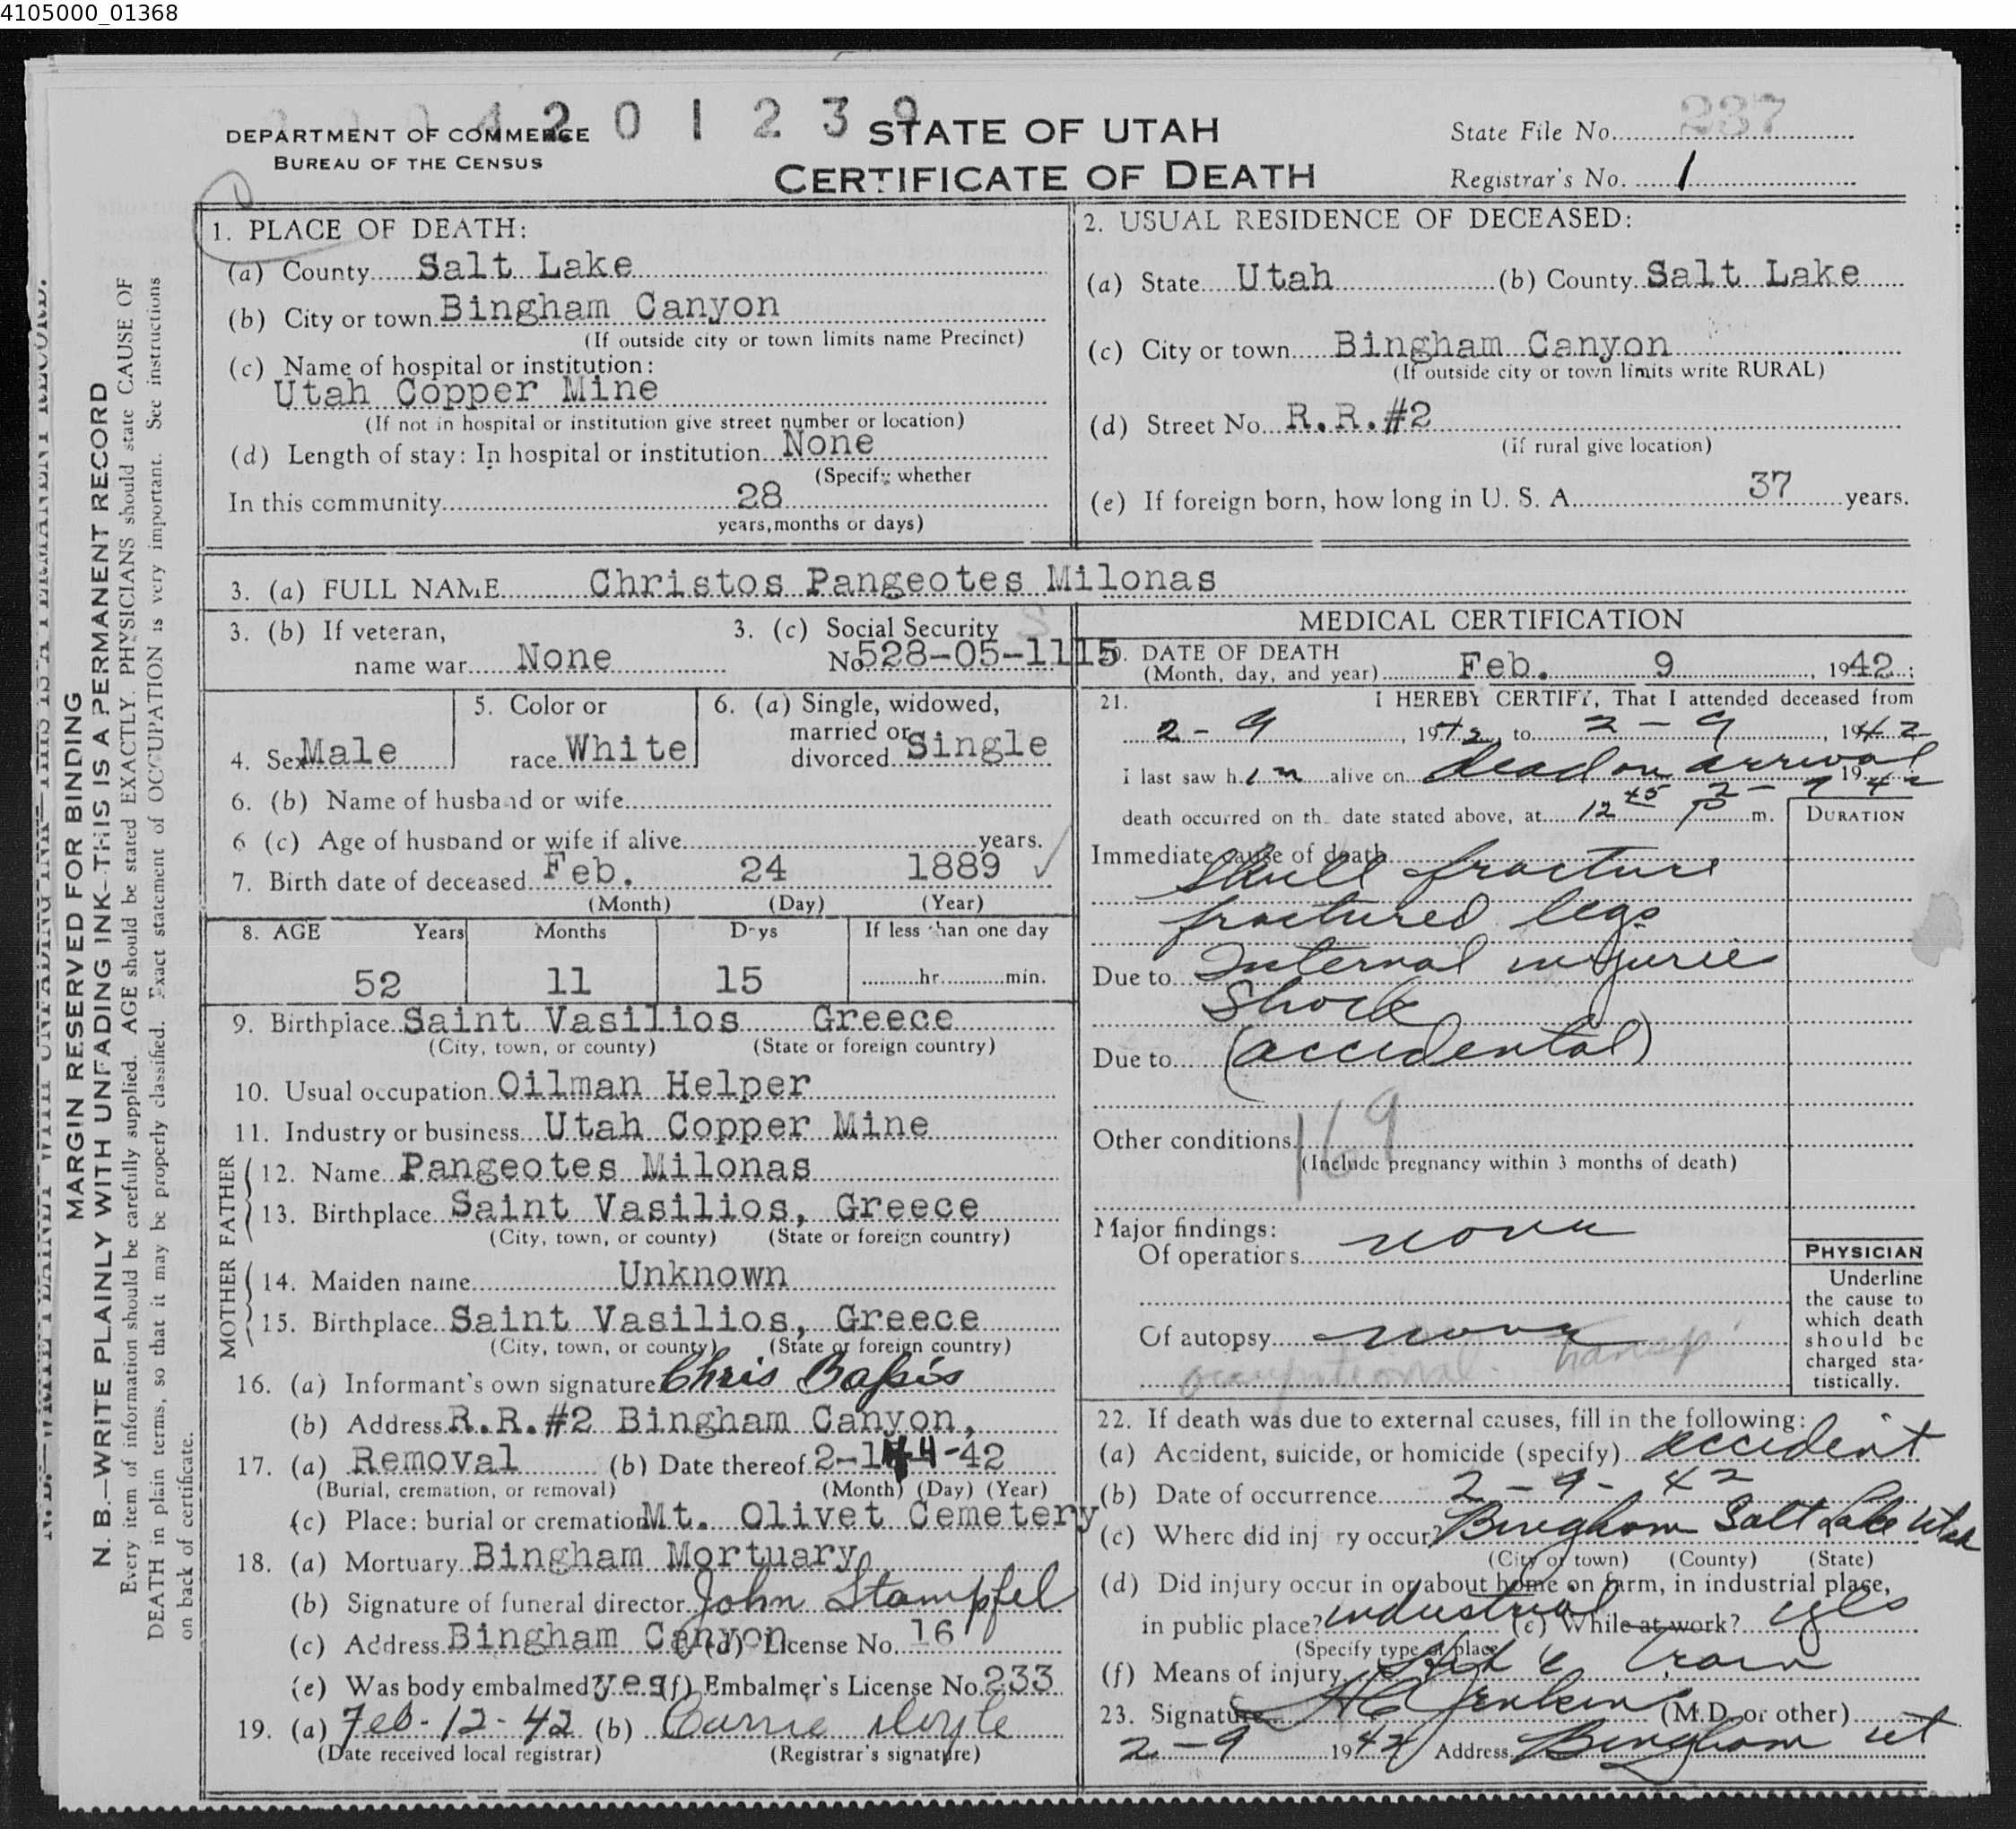 4105000_01368
4 2 0 1 2 3 9
DEPARTMENT OF COMMERCE
BUREAU OF THE CENSUS
STATE OF UTAH
CERTIFICATE OF DEATH
State File No. 237
Registrar's No. 1
1. PLACE OF DEATH:
(a) County Salt Lake
(b) City or town Bingham Canyon
(If outside city or town limits name Precinct)
(c) Name of hospital or institution:
Utah Copper Mine
(If not in hospital or institution give street number or location)
(d) Length of stay: In hospital or institution None
(Specify whether
In this community 28
years, months or days)
2. USUAL RESIDENCE OF DECEASED:
(a) State Utah (b) County Salt Lake
(c) City or town Bingham Canyon
(If outside city or town limits write RURAL)
(d) Street No. R.R.#2
(if rural give location)
(e) If foreign born, how long in U. S. A. 37 years.
3. (a) FULL NAME Christos Pangeotes Milonas
3. (b) If veteran,
name war None
3. (c) Social Security
No. 528-05-1115
4. Sex Male
5. Color or
race White
6. (a) Single, widowed,
married or
divorced Single
6. (b) Name of husband or wife
6 (c) Age of husband or wife if alive years.
7. Birth date of deceased Feb. 24 1889 ✓
(Month) (Day) (Year)
8. AGE Years Months Days If less than one day
52 11 15 hr. min.
9. Birthplace Saint Vasilios Greece
(City, town, or county) (State or foreign country)
10. Usual occupation Oilman Helper
11. Industry or business Utah Copper Mine
FATHER
12. Name Pangeotes Milonas
13. Birthplace Saint Vasilios, Greece
(City, town, or county) (State or foreign country)
MOTHER
14. Maiden name Unknown
15. Birthplace Saint Vasilios, Greece
(City, town, or county) (State or foreign country)
16. (a) Informant's own signature Chris
(b) Address R.R.#2 Bingham Canyon,
17. (a) Removal (b) Date thereof 2-14-42
(Burial, cremation, or removal) (Month) (Day) (Year)
(c) Place: burial or cremation Mt. Olivet Cemetery
18. (a) Mortuary Bingham Mortuary
(b) Signature of funeral director John Stampfel
(c) Address Bingham Canyon (d) License No. 16
(e) Was body embalmed? yes (f) Embalmer's License No. 233
19. (a) Feb-12-42 (b) Carrie Doyle
(Date received local registrar) (Registrar's signature)
MEDICAL CERTIFICATION
20. DATE OF DEATH
(Month, day, and year) Feb. 9, 1942;
21. I HEREBY CERTIFY, That I attended deceased from
2-9, 1942, to 2-9, 1942
I last saw him alive on dead on arrival 19
2-9 42
death occurred on the date stated above, at 12 45 P m.
DURATION
Immediate cause of death
Skull fracture
fractured legs
Due to Internal injuries
Shock
Due to (accidental)
169
Other conditions
(Include pregnancy within 3 months of death)
Major findings:
Of operations none
Of autopsy none
occupational
PHYSICIAN
Underline
the cause to
which death
should be
charged sta-
tistically.
22. If death was due to external causes, fill in the following:
(a) Accident, suicide, or homicide (specify) accident
(b) Date of occurrence 2-9-42
(c) Where did injury occur? Bingham Salt Lake Utah
(City or town) (County) (State)
(d) Did injury occur in or about home on farm, in industrial place,
in public place? industrial (e) While at work? yes
(Specify type of place)
(f) Means of injury Train
23. Signature H C Jenkins (M.D. or other)
2-9 1942 Address Bingham ut
MARGIN RESERVED FOR BINDING
N. B.—WRITE PLAINLY WITH UNFADING INK—THIS IS A PERMANENT RECORD
Every item of information should be carefully supplied. AGE should be stated EXACTLY. PHYSICIANS should state CAUSE OF
DEATH in plain terms, so that it may be properly classified. Exact statement of OCCUPATION is very important. See instructions
on back of certificate.